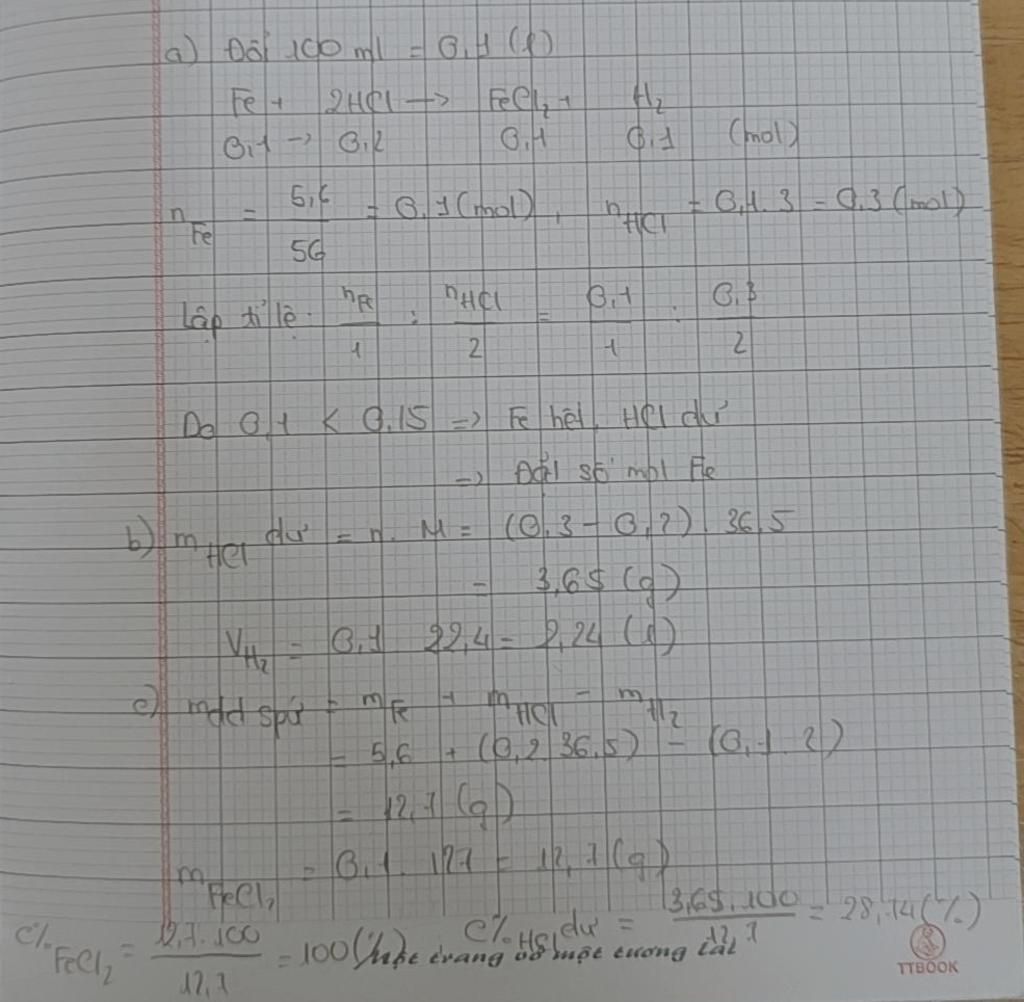 a) Đổi 100 ml = 0,1 (l)
Fe + 2HCl → FeCl₂ + H₂
0,1 → 0,2 0,1 0,1 (mol)
n_Fe = 5,6/56 = 0,1 (mol), n_HCl = 0,1.3 = 0,3 (mol)
Lập tỉ lệ: n_Fe/1 : n_HCl/2 = 0,1/1 : 0,3/2
Do 0,1 < 0,15 => Fe hết, HCl dư
=> Đổi số mol Fe
b) m_HCl dư = n. M = (0,3 - 0,2). 36,5
= 3,65 (g)
V_H₂ = 0,1. 22,4 = 2,24 (l)
c) mdd spứ = m_Fe + m_HCl - m_H₂
= 5,6 + (0,2.36,5) - (0,1.2)
= 12,7 (g)
m_FeCl₂ = 0,1. 127 = 12,7 (g)
C%_FeCl₂ = 12,7.100/12,7 = 100(%) C%_HCl dư = 3,65.100/12,7 = 28,74(%)
một trang vở một tương lai
TTBOOK